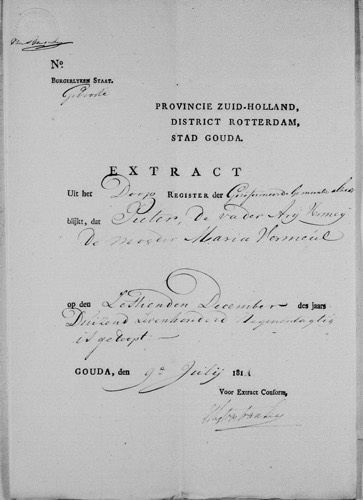 N<sup>o</sup>.
BURGERLYKEN STAAT.
Geboorte
PROVINCIE ZUID-HOLLAND,
DISTRICT ROTTERDAM,
STAD GOUDA.
EXTRACT
Uit het Doop REGISTER der Gereformeerde Gemeente
blijkt, dat Pieter, de vader Arij Vermeij
de moeder Maria Vermeul
op den Zestienden December des jaars
Duizend zevenhonderd negenentagtig
is gedoopt.
GOUDA, den 9e Julij 181
Voor Extract Conform,